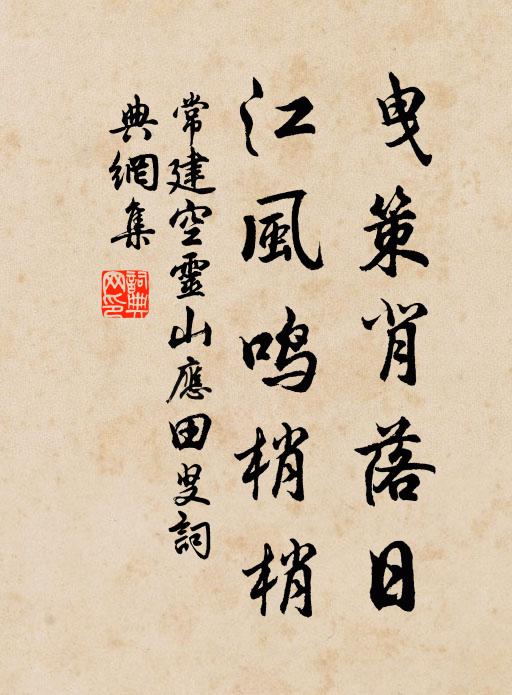 曳策背落日
江風鳴梢梢
常建空靈山應田叟詞
典網集
詞典網印